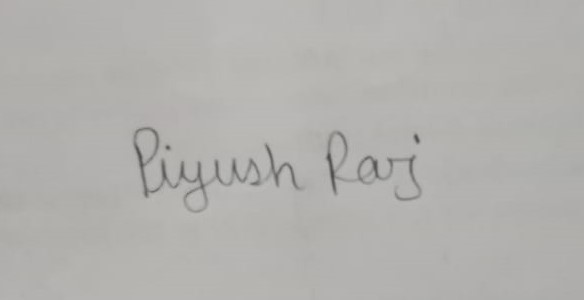 Piyush Raj